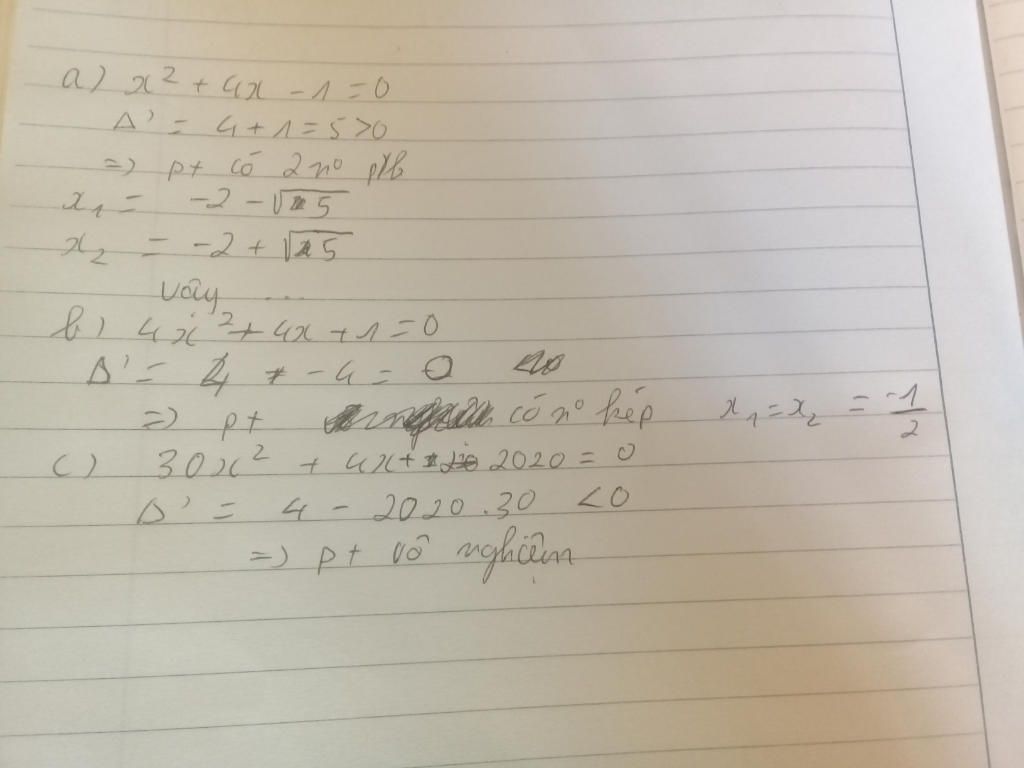 a) x² + 4x - 1 = 0
Δ' = 4 + 1 = 5 > 0
=> pt có 2 n⁰ pb
x₁ = -2 - √5
x₂ = -2 + √5
vậy ...
b) 4x² + 4x + 1 = 0
Δ' = 4 - 4 = 0
=> pt có n⁰ kép x₁ = x₂ = -1/2
c) 30x² + 4x + 2020 = 0
Δ' = 4 - 2020.30 < 0
=> pt vô nghiệm